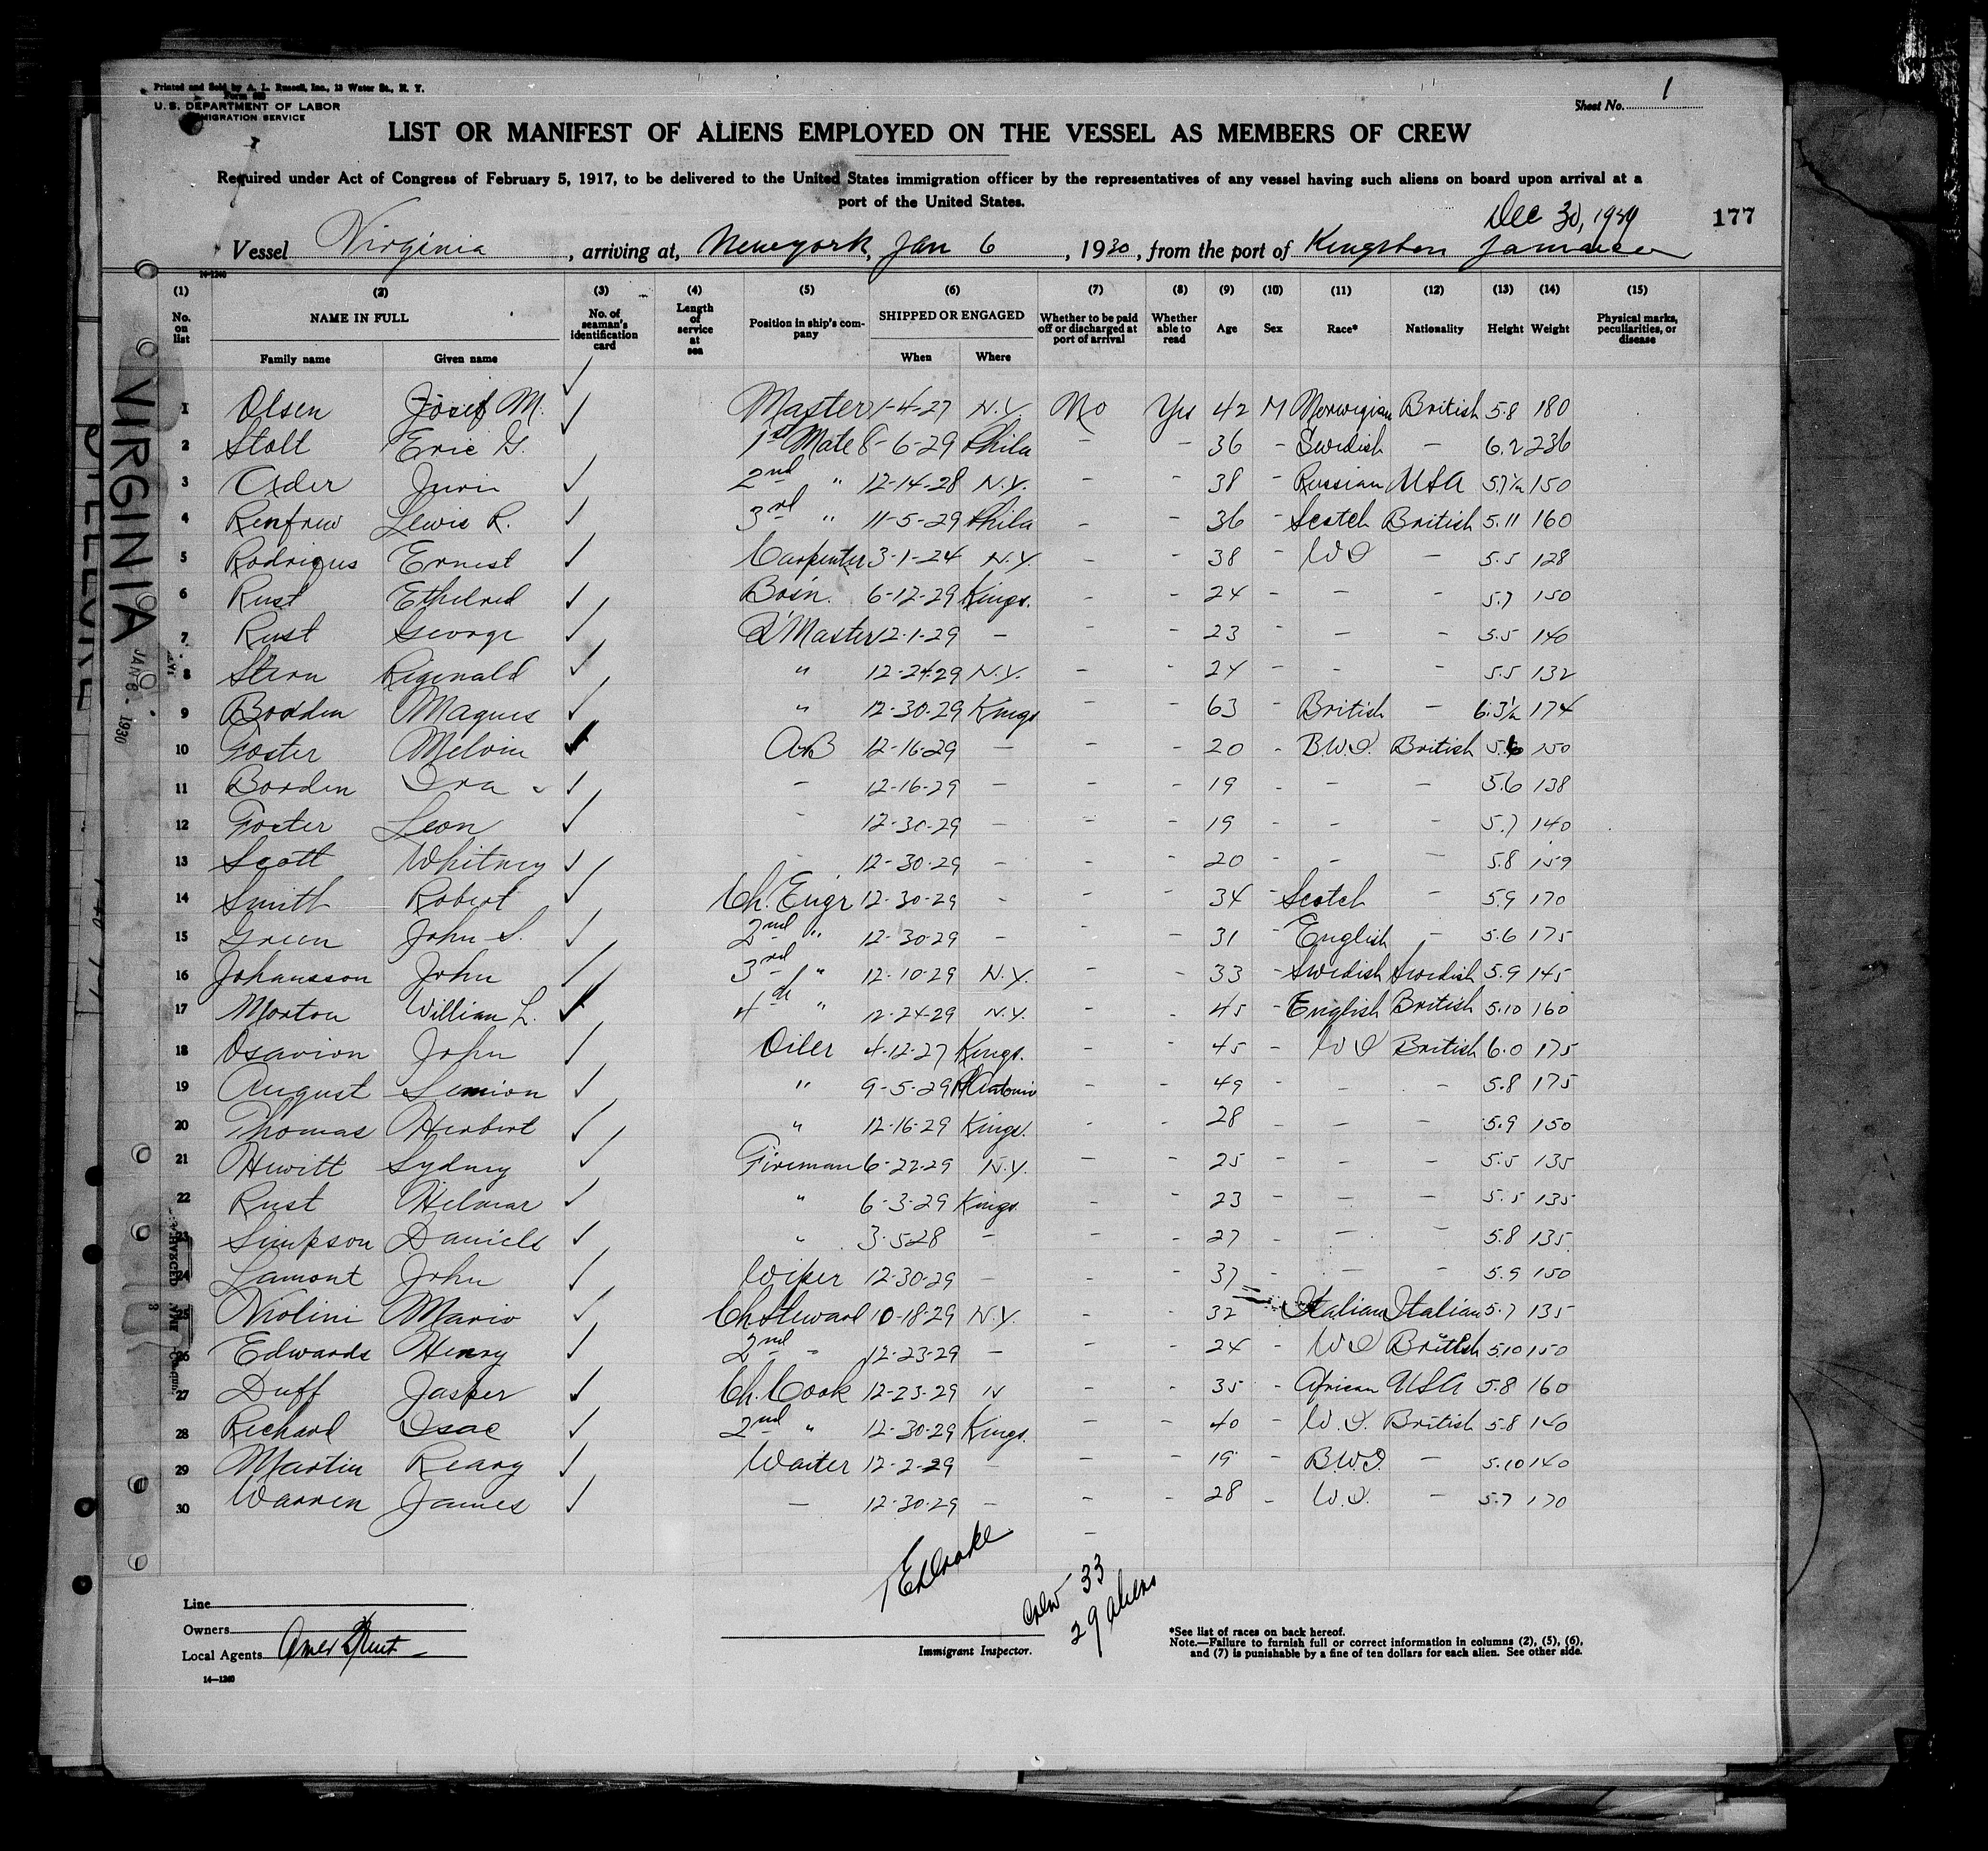 Printed and Sold by A. L. Russell, Inc., 13 Water St., N. Y.
U. S. DEPARTMENT OF LABOR
IMMIGRATION SERVICE
Sheet No. 1
LIST OR MANIFEST OF ALIENS EMPLOYED ON THE VESSEL AS MEMBERS OF CREW
Required under Act of Congress of February 5, 1917, to be delivered to the United States immigration officer by the representatives of any vessel having such aliens on board upon arrival at a
port of the United States.
Dec 30, 1929
177
Vessel Virginia, arriving at, Newyork, Jan 6, 1930, from the port of Kingston Jamaica
14-1240
(1) (2) (3) (4) (5) (6) (7) (8) (9) (10) (11) (12) (13) (14) (15)
No. on list NAME IN FULL No. of seaman's identification card Length of service at sea Position in ship's company SHIPPED OR ENGAGED Whether to be paid off or discharged at port of arrival Whether able to read Age Sex Race* Nationality Height Weight Physical marks, peculiarities, or disease
Family name Given name When Where
1 Olsen Josef M. ✓ Master 1-4-27 N.Y. No Yes 42 M Norwegian British 5.8 180
2 Stolt Eric G. 1st Mate 8-6-29 Phila - - 36 - Swedish - 6.2 236
3 Oxder Jurin ✓ 2nd " 12-14-28 N.Y. - - 38 - Russian USA 5.7½ 150
4 Renfrew Lewis R. ✓ 3rd " 11-5-29 Phila - - 36 - Scotch British 5.11 160
5 Rodriques Ernest ✓ Carpenter 3-1-24 N.Y. - - 38 - WI - 5.5 128
6 Rust Ethelred ✓ Bosn. 6-12-29 Kings. - - 24 - - - 5.7 150
7 Rust George ✓ Q Master 12-1-29 - - - 23 - - - 5.5 140
8 Stern Riginald ✓ " 12-24-29 N.Y. - - 24 - - - 5.5 132
9 Bodden Magnes ✓ " 12-30-29 Kings - - 63 - British - 6.3½ 174
10 Foster Melvin ✓ AB 12-16-29 - - - 20 - B.W.I. British 5.6 150
11 Borden Ira ✓ - 12-16-29 - - - 19 - - - 5.6 138
12 Foster Leon ✓ - 12-30-29 - - - 19 - - - 5.7 140
13 Scott Whitney ✓ - 12-30-29 - - - 20 - - - 5.8 159
14 Smith Robert ✓ Ch. Engr 12-30-29 - - - 34 - Scotch - 5.9 170
15 Green John S. ✓ 2nd " 12-30-29 - - - 31 - English - 5.6 175
16 Johansson John ✓ 3rd " 12-10-29 N.Y. - - 33 - Swedish Swedish 5.9 145
17 Morton William L. ✓ 4th " 12-24-29 N.Y. - - 45 - English British 5.10 160
18 Osavion John ✓ Oiler 4-12-27 Kings. - - 45 - WI British 6.0 175
19 August Simion ✓ " 9-5-29 P Antonio - - 49 - - - 5.8 175
20 Thomas Herbert ✓ " 12-16-29 Kings. - - 28 - - - 5.9 150
21 Hewitt Sydney ✓ Fireman 6-22-29 N.Y. - - 25 - - - 5.5 135
22 Rust Helmar ✓ " 6-3-29 Kings. - - 23 - - - 5.5 135
23 Simpson Daniels ✓ " 3-5-28 - - - 27 - - - 5.8 135
24 Lamont John ✓ Wiper 12-30-29 - - - 37 - - - 5.9 150
25 Violini Mario ✓ Ch Steward 10-18-29 N.Y. 32 Italian Italian 5.7 135
26 Edwards Henry ✓ 2nd - 12-23-29 - - - 24 - WI British 5.10 150
27 Duff Jasper ✓ Ch. Cook 12-23-29 N - - 35 - African USA 5.8 160
28 Richard Isac ✓ 2nd " 12-30-29 Kings. - - 40 - W.I. British 5.8 140
29 Martin Reary ✓ Waiter 12-2-29 - - - 19 - B.W.I. - 5.10 140
30 Warren James ✓ - 12-30-29 - - - 28 - W.I. - 5.7 170
Crew 33
29 aliens
Line
Owners
Local Agents
Immigrant Inspector.
*See list of races on back hereof.
Note.—Failure to furnish full or correct information in columns (2), (5), (6),
and (7) is punishable by a fine of ten dollars for each alien. See other side.
14—1240
VIRGINIA
JAN 6 - 1930